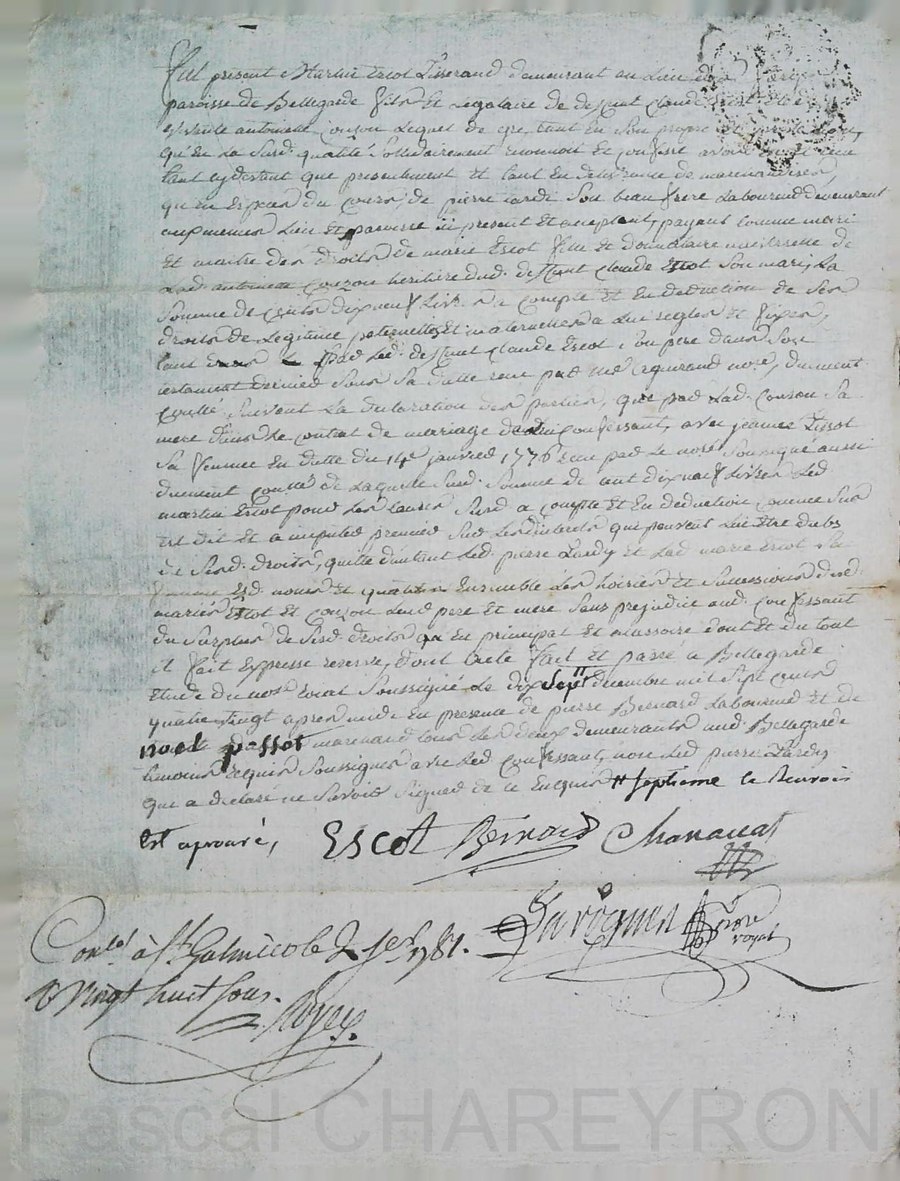 Fut présent Martin Escot Tisserand demeurant au Lieu
paroisse de Bellegarde fils et Legataire de defunt Claude Escot et de
vivante antoinette Couzon Lequel de gré, tant en son propre et privé nom,
qu'en La susd. qualité solidairement reconnoit et confesse avoir
tant cydevant que présentement et tant en délivrance de marchandises,
qu'en espèces du cours, de pierre Lardi son beau frere Laboureur demeurant
auxmêmes Lieu et paroisse ici présent et acceptant, payant comme mari
et maitre des droits de marie Escot fille et donataire de
Lad. antoinette Couzon heritière dud. defunt Claude Escot son mari, La
somme de cents dixneuf Livres a compte et en deduction de ses
droits de Legitime paternelles et maternelles a Lui reglés et fixés,
tant par Led. defunt Claude Escot son père dans son
testament dernier sous sa datte reçu par me notre, duement
Contlé suivant La declaration des parties, que par Lad. Couzon sa
mere dans Le contrat de mariage dudit confessant, avec jeanne Tissot
sa femme en datte du 14e janvier 1776 reçu par Le notre soussigné aussi
duement contlé de Laquelle susd. somme de cent dixneuf Livres Led
martin Escot pour Les causes susd a compte et en deduction comme sus
est dit et a imputer premier sur Les interets qui peuvent Lui être dubs
de sesd. droits, quitte d'autant Led. pierre Lardy et Lad marie Escot sa
femme ensemble Les hoiries et successions desd.
mariés Escot et Couzon Leurs pere et mere sans prejudice aud. confessant
du surplus de sesd. droits en principal et accessoire dont et du tout
il fait expresse reserve, dont acte fait et passé a Bellegarde
Etude du notre royal soussigné Le dix sept decembre mil sept cents
quatre vingt apres midi en presence de pierre Bernard Laboureur et de
noel passot marchand tous Les deux demeurants aud. Bellegarde
temoins requis soussignés avec Led. confessant, non Led. pierre Lardy
qui a declaré ne savoir signer de ce enquis # septieme le renvois
est aprouvé,
Escot Bernard Chanavat
notre royal
Contlé à St Galmier le 2 jer 1781.
R vingt huit sous.
Pascal CHAREYRON